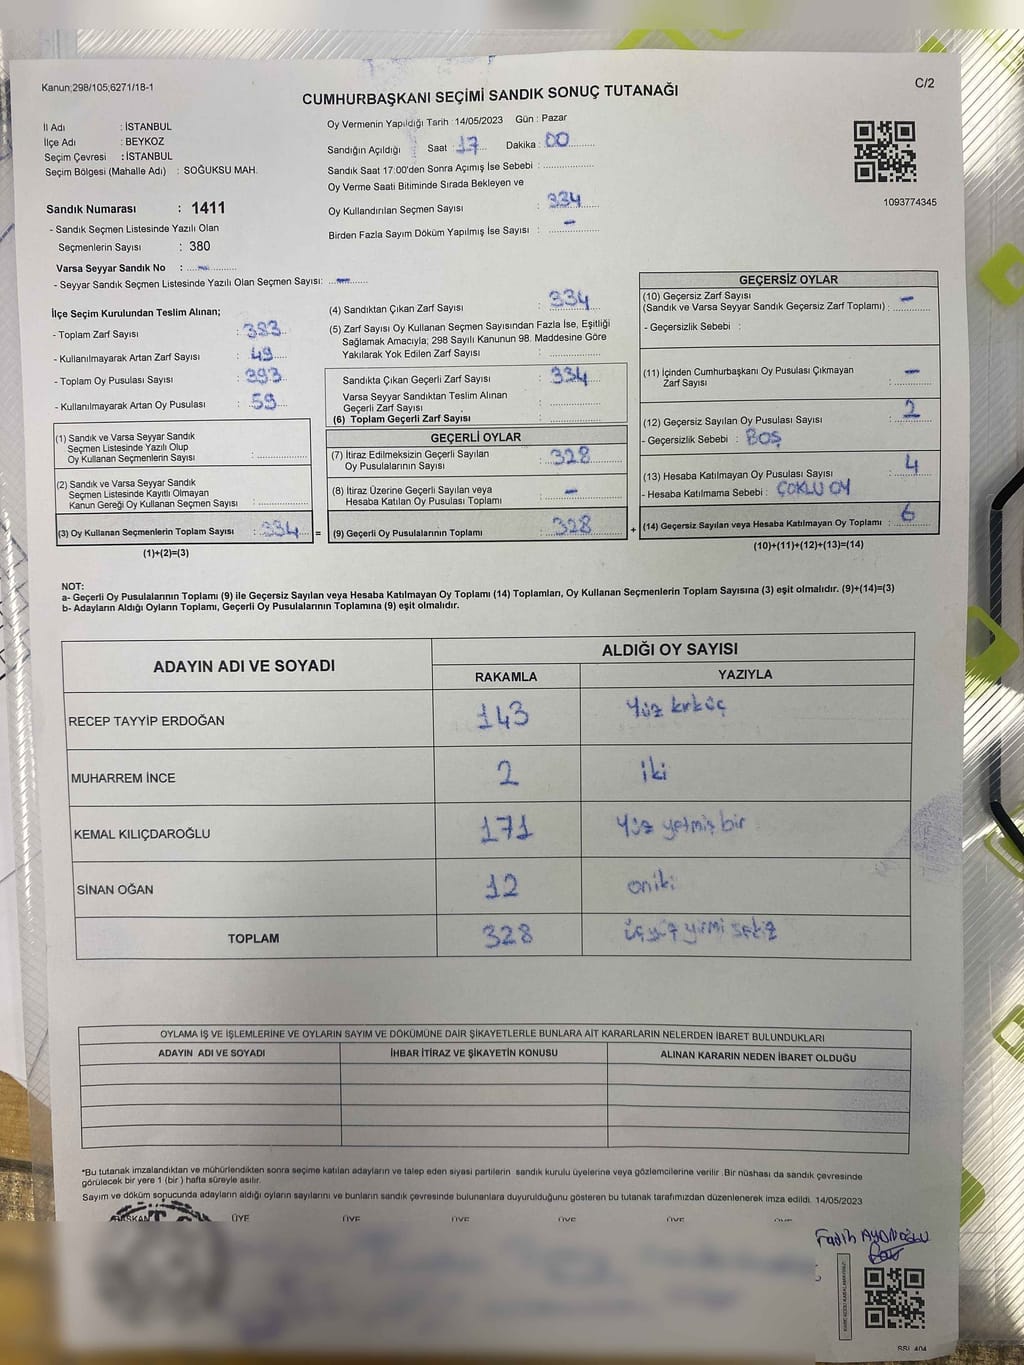 Kanun;298/105;6271/18-1
C/2
CUMHURBAŞKANI SEÇİMİ SANDIK SONUÇ TUTANAĞI
İl Adı : İSTANBUL
İlçe Adı : BEYKOZ
Seçim Çevresi : İSTANBUL
Seçim Bölgesi (Mahalle Adı) : SOĞUKSU MAH.
Oy Vermenin Yapıldığı Tarih : 14/05/2023 Gün : Pazar
Sandığın Açıldığı Saat : 17 Dakika : 00
Sandık Saat 17:00'den Sonra Açımış İse Sebebi :
Oy Verme Saati Bitiminde Sırada Bekleyen ve
Oy Kullandırılan Seçmen Sayısı : 334
Birden Fazla Sayım Döküm Yapılmış İse Sayısı : -
1093774345
Sandık Numarası : 1411
- Sandık Seçmen Listesinde Yazılı Olan
Seçmenlerin Sayısı : 380
Varsa Seyyar Sandık No : -
- Seyyar Sandık Seçmen Listesinde Yazılı Olan Seçmen Sayısı: -
İlçe Seçim Kurulundan Teslim Alınan;
- Toplam Zarf Sayısı : 383
- Kullanılmayarak Artan Zarf Sayısı : 49
- Toplam Oy Pusulası Sayısı : 393
- Kullanılmayarak Artan Oy Pusulası : 59
(1) Sandık ve Varsa Seyyar Sandık
Seçmen Listesinde Yazılı Olup
Oy Kullanan Seçmenlerin Sayısı :
(2) Sandık ve Varsa Seyyar Sandık
Seçmen Listesinde Kayıtlı Olmayan
Kanun Gereği Oy Kullanan Seçmen Sayısı :
(3) Oy Kullanan Seçmenlerin Toplam Sayısı : 334 =
(1)+(2)=(3)
(4) Sandıktan Çıkan Zarf Sayısı : 334
(5) Zarf Sayısı Oy Kullanan Seçmen Sayısından Fazla İse, Eşitliği
Sağlamak Amacıyla; 298 Sayılı Kanunun 98. Maddesine Göre
Yakılarak Yok Edilen Zarf Sayısı :
Sandıkta Çıkan Geçerli Zarf Sayısı : 334
Varsa Seyyar Sandıktan Teslim Alınan
Geçerli Zarf Sayısı :
(6) Toplam Geçerli Zarf Sayısı :
GEÇERLİ OYLAR
(7) İtiraz Edilmeksizin Geçerli Sayılan
Oy Pusulalarının Sayısı : 328
(8) İtiraz Üzerine Geçerli Sayılan veya
Hesaba Katılan Oy Pusulası Toplamı : -
(9) Geçerli Oy Pusulalarının Toplamı : 328 +
GEÇERSİZ OYLAR
(10) Geçersiz Zarf Sayısı
(Sandık ve Varsa Seyyar Sandık Geçersiz Zarf Toplamı) : -
- Geçersizlik Sebebi :
(11) İçinden Cumhurbaşkanı Oy Pusulası Çıkmayan
Zarf Sayısı : -
(12) Geçersiz Sayılan Oy Pusulası Sayısı : 2
- Geçersizlik Sebebi : BOŞ
(13) Hesaba Katılmayan Oy Pusulası Sayısı : 4
- Hesaba Katılmama Sebebi : ÇOKLU OY
(14) Geçersiz Sayılan veya Hesaba Katılmayan Oy Toplamı : 6
(10)+(11)+(12)+(13)=(14)
NOT:
a- Geçerli Oy Pusulalarının Toplamı (9) ile Geçersiz Sayılan veya Hesaba Katılmayan Oy Toplamı (14) Toplamları, Oy Kullanan Seçmenlerin Toplam Sayısına (3) eşit olmalıdır. (9)+(14)=(3)
b- Adayların Aldığı Oyların Toplamı, Geçerli Oy Pusulalarının Toplamına (9) eşit olmalıdır.
ADAYIN ADI VE SOYADI
ALDIĞI OY SAYISI
RAKAMLA YAZIYLA
RECEP TAYYİP ERDOĞAN 143 Yüz kırküç
MUHARREM İNCE 2 iki
KEMAL KILIÇDAROĞLU 171 Yüz yetmiş bir
SİNAN OĞAN 12 oniki
TOPLAM 328 üçyüz yirmi sekiz
OYLAMA İŞ VE İŞLEMLERİNE VE OYLARIN SAYIM VE DÖKÜMÜNE DAİR ŞİKAYETLERLE BUNLARA AİT KARARLARIN NELERDEN İBARET BULUNDUKLARI
ADAYIN ADI VE SOYADI İHBAR İTİRAZ VE ŞİKAYETİN KONUSU ALINAN KARARIN NEDEN İBARET OLDUĞU
*Bu tutanak imzalandıktan ve mühürlendikten sonra seçime katılan adayların ve talep eden siyasi partilerin sandık kurulu üyelerine veya gözlemcilerine verilir. Bir nüshası da sandık çevresinde
görülecek bir yere 1 (bir ) hafta süreyle asılır.
Sayım ve döküm sonucunda adayların aldığı oyların sayılarını ve bunların sandık çevresinde bulunanlara duyurulduğunu gösteren bu tutanak tarafımızdan düzenlenerek imza edildi. 14/05/2023
BAŞKAN ÜYE ÜYE ÜYE ÜYE ÜYE ÜYE
Fatih